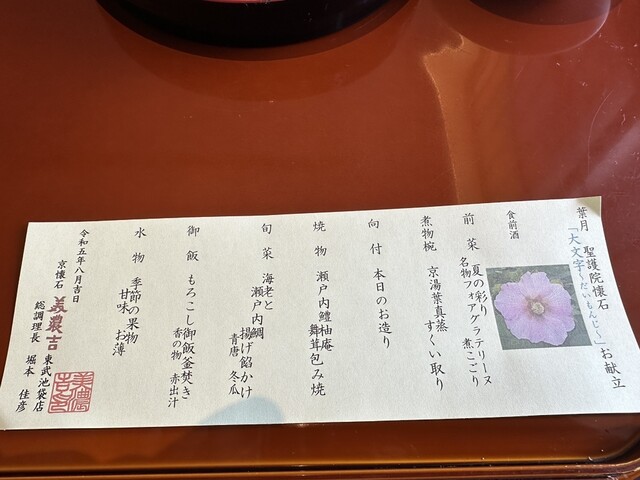 葉月 聖護院懐石
「大文字～だいもんじ～」お献立
食前酒
前菜 夏の彩り
名物フォアグラテリーヌ
煮こごり
煮物椀 京湯葉真蒸
すくい取り
向付 本日のお造り
焼物 瀬戸内鱧柚庵
舞茸包み焼
旬菜 海老と
瀬戸内鯛
揚げ餡かけ
青唐 冬瓜
御飯 もろこし御飯釜焚き
香の物 赤出汁
水物 季節の果物
甘味 お薄
令和五年八月吉日
京懐石 美濃吉 東武池袋店
総調理長 堀本 佳彦
美濃吉